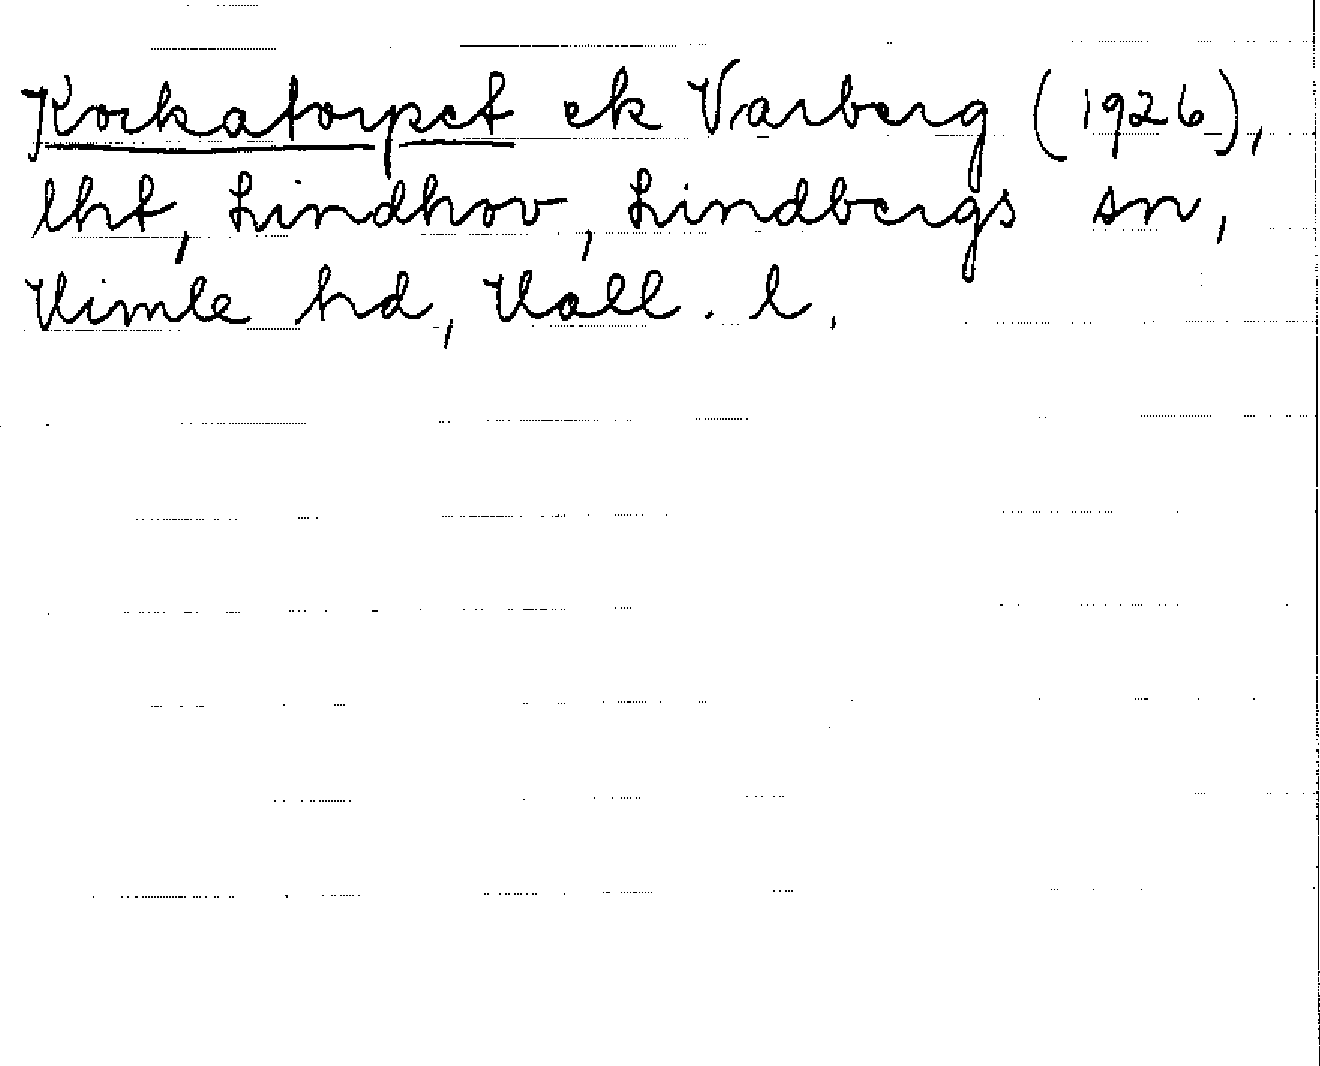 Kockatorpet ek Varberg (1926),
lht, Lindhov, Lindbergs sn,
Himle hd, Hall. l.